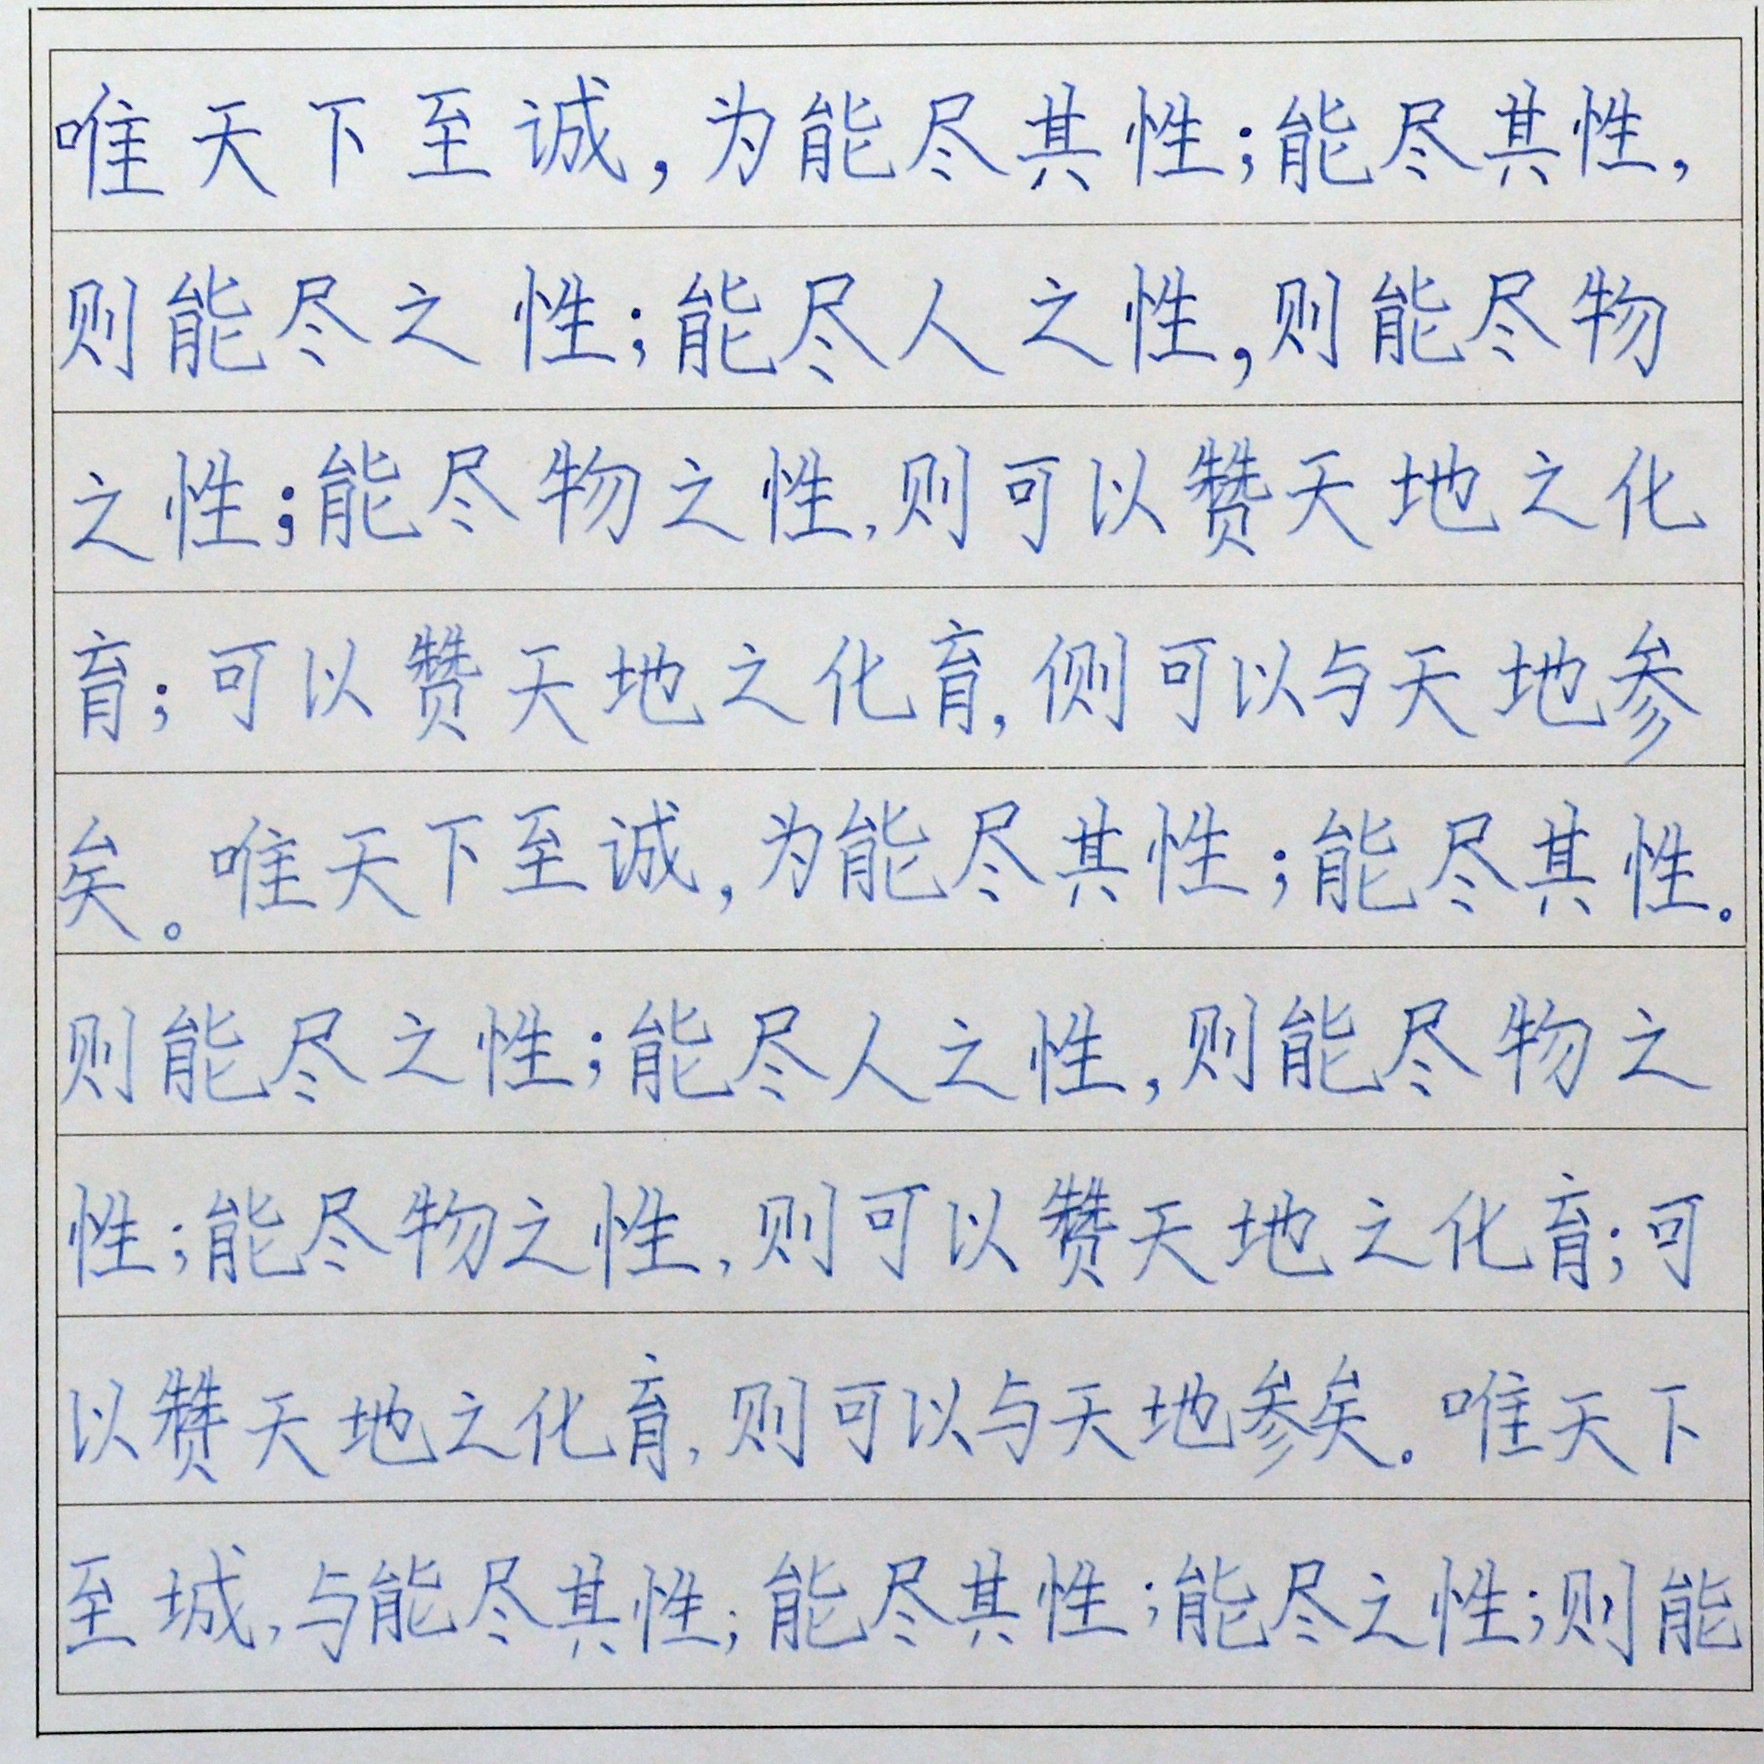 唯天下至诚,为能尽其性;能尽其性,
则能尽之性;能尽人之性,则能尽物
之性;能尽物之性,则可以赞天地之化
育;可以赞天地之化育,侧可以与天地参
矣。唯天下至诚,为能尽其性;能尽其性。
则能尽之性;能尽人之性,则能尽物之
性;能尽物之性,则可以赞天地之化育;可
以赞天地之化育,则可以与天地参矣。唯天下
至城,与能尽其性;能尽其性;能尽之性;则能